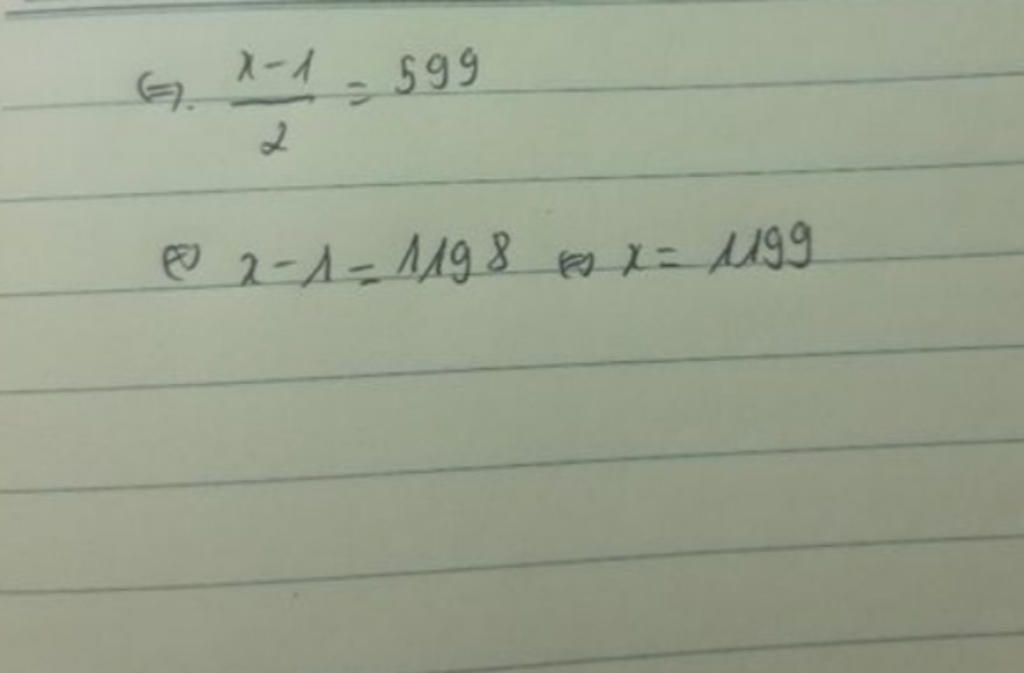 ⇔. x-1/2 = 599
⇔ x-1 = 1198 ⇔ x = 1199